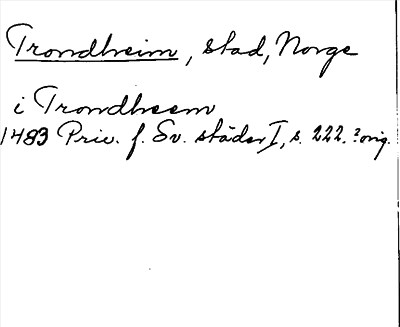 Trondheim, stad, Norge
i Trondheem
1483 Priv. f. Sv. städer I, s. 222. ?orig.